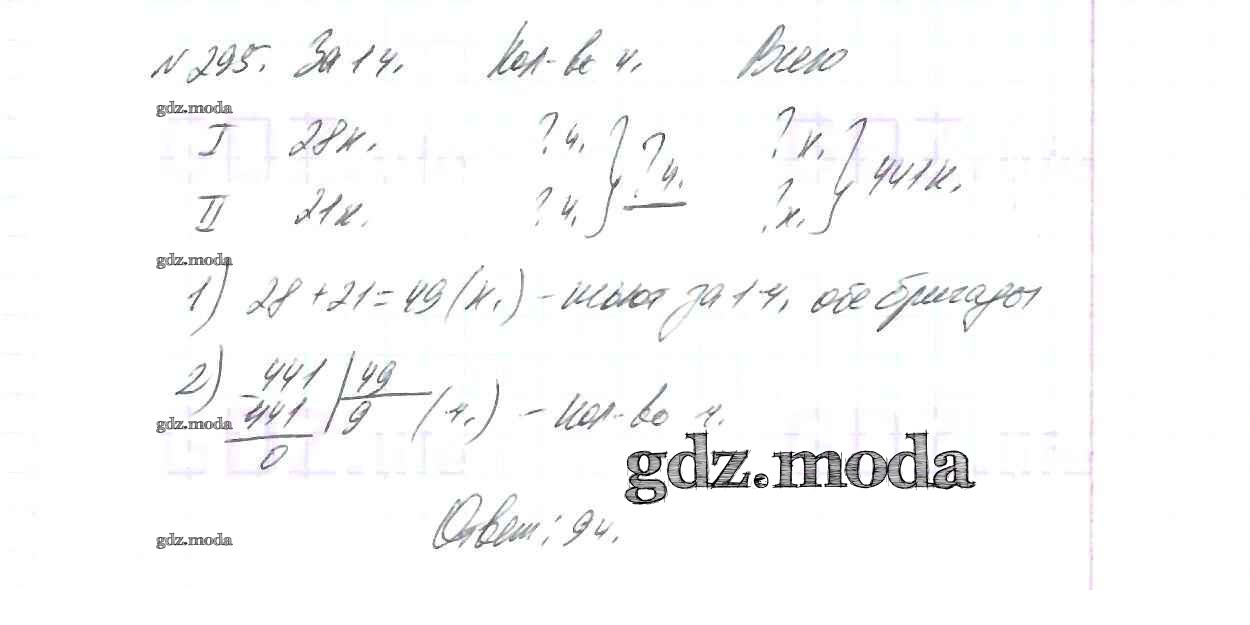 №295. За 1 ч. Кол-во ч. Всего
gdz.moda
I 28к. ? ч. } ? ч. ? к. } 441к.
II 21к. ? ч. ? к.
gdz.moda
1) 28 + 21 = 49 (к.) – шьют за 1 ч. обе бригады
2) 441 | 49
gdz.moda 441 9 (ч.) – кол-во ч.
0
gdz.moda
gdz.moda Ответ: 9ч.